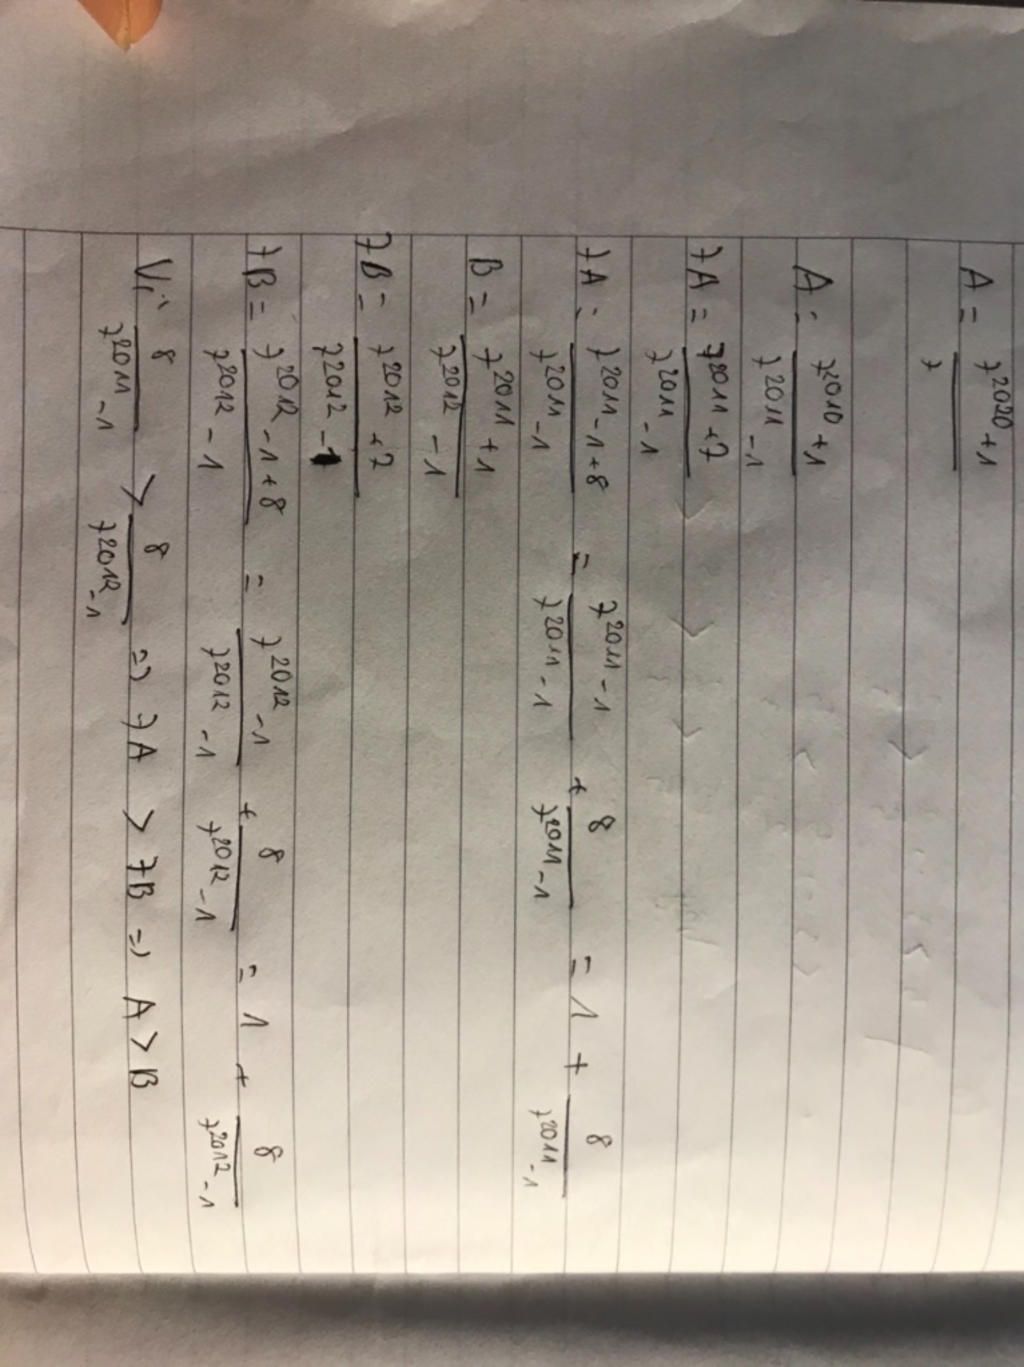 A = 7^2020 + 1 / 7
A = 7^2010 + 1 / 7^2011 - 1
7A = 7^2011 + 7 / 7^2011 - 1
7A = 7^2011 - 1 + 8 / 7^2011 - 1 = 7^2011 - 1 / 7^2011 - 1 + 8 / 7^2011 - 1 = 1 + 8 / 7^2011 - 1
B = 7^2011 + 1 / 7^2012 - 1
7B = 7^2012 + 7 / 7^2012 - 1
7B = 7^2012 - 1 + 8 / 7^2012 - 1 = 7^2012 - 1 / 7^2012 - 1 + 8 / 7^2012 - 1 = 1 + 8 / 7^2012 - 1
Vì 8 / 7^2011 - 1 > 8 / 7^2012 - 1 => 7A > 7B => A > B